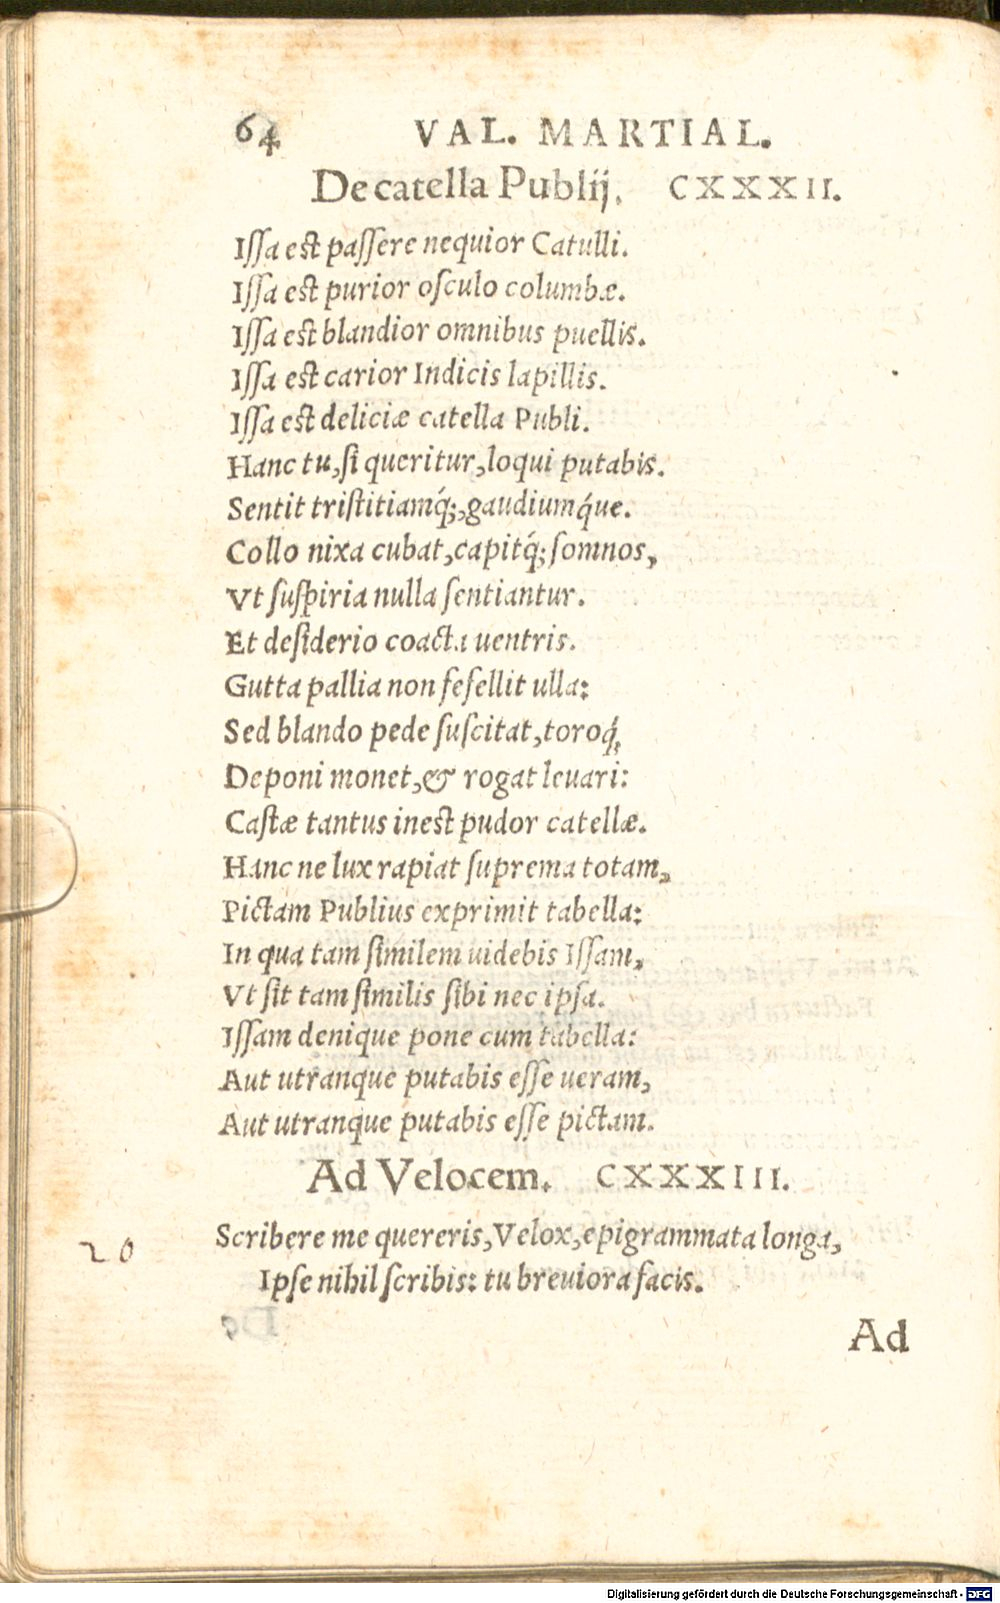 64 VAL. MARTIAL.
De catella Publij. CXXXII.
Iſſa est paſſere nequior Catulli.
Iſſa est purior oſculo columbæ.
Iſſa est blandior omnibus puellis.
Iſſa est carior Indicis lapillis.
Iſſa est deliciæ catella Publi.
Hanc tu, ſi queritur, loqui putabis.
Sentit triſtitiamq́;, gaudiumq́ue.
Collo nixa cubat, capitq́; ſomnos,
Vt ſuſpiria nulla ſentiantur.
Et deſiderio coacta uentris.
Gutta pallia non fefellit ulla:
Sed blando pede ſuſcitat, toroq́;
Deponi monet, & rogat leuari:
Caſtæ tantus inest pudor catellæ.
Hanc ne lux rapiat ſuprema totam,
Pictam Publius exprimit tabella:
In qua tam ſimilem uidebis Iſſam,
Vt ſit tam ſimilis ſibi nec ipſa.
Iſſam denique pone cum tabella:
Aut utranque putabis eſſe ueram,
Aut utranque putabis eſſe pictam.
Ad Velocem. CXXXIII.
Scribere me quereris, Velox, epigrammata longa,
20
Ipſe nihil ſcribis: tu breuiora facis.
Ad
Digitalisierung gefördert durch die Deutsche Forschungsgemeinschaft - DFG